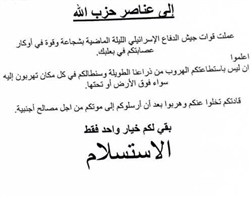 إلى عناصر حزب الله
عملت قوات جيش الدفاع الإسرائيلي الليلة الماضية بشجاعة وقوة في أوكار
عصابتكم في بعلبك.
اعلموا
ان ليس باستطاعتكم الهروب من ذراعنا الطويلة وستطالكم في كل مكان تهربون إليه
سواء فوق الأرض أو تحتها.
قادتكم تخلوا عنكم وهربوا بعد أن أرسلوكم إلى موتكم من اجل مصالح أجنبية.
بقي لكم خيار واحد فقط
الاستسلام